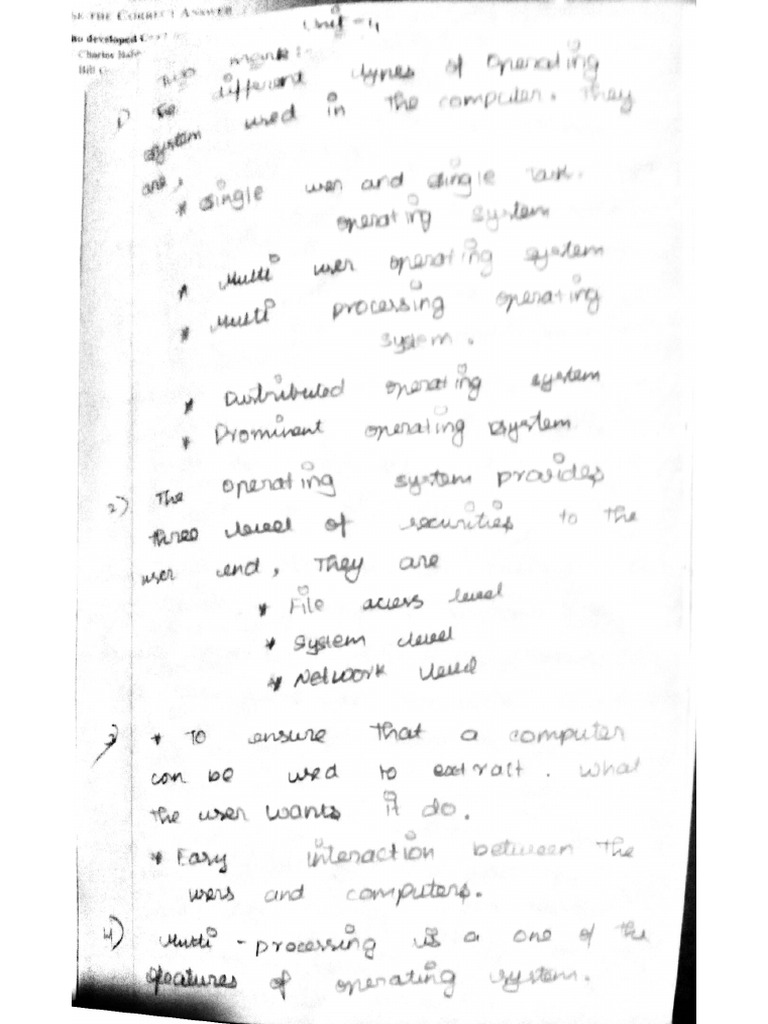 THE CORRECT ANSWER
Unit - 4
developed
Charles
Bill
Two mark:-
1) different types of operating
system used in the computer. They
are,
* Single user and single task.
operating system
* Multi user operating system
* Multi processing operating
system.
* Distributed operating system
* Prominent operating system
2) The operating system provides
three level of securities to the
user end, They are
* File access level
* System level
* Network level
3) * To ensure that a computer
can be used to extract. What
the user wants it do.
* Easy interaction between the
users and computers.
4) Multi - processing is a one of the
features of operating system.